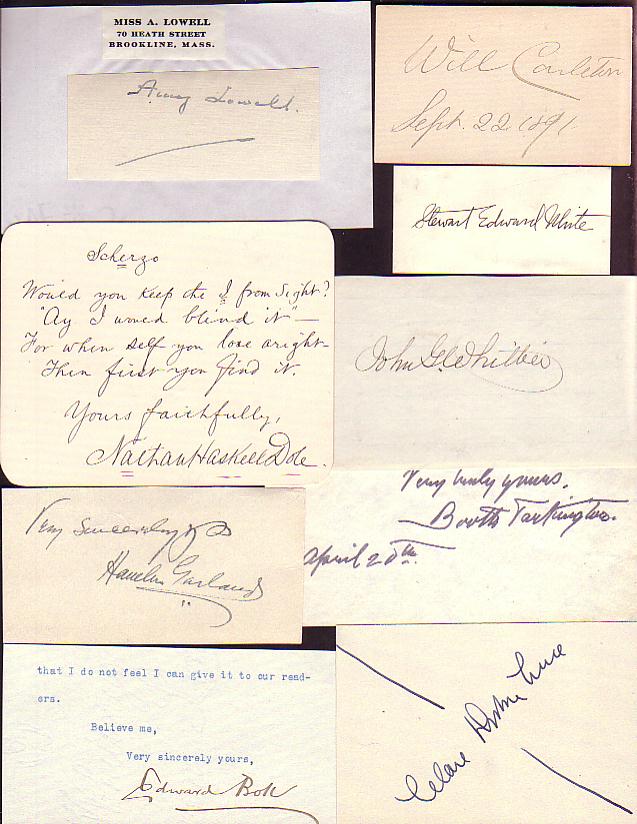 MISS A. LOWELL
70 HEATH STREET
BROOKLINE, MASS.
Amy Lowell.
Will Carleton
Sept. 22 1891
Stewart Edward White
Scherzo
Would you keep the I from sight?
"Ay I would blind it"—
For when self you lose aright
Then first you find it.
Yours faithfully,
Nathan Haskell Dole.
John G. Whittier
Very truly yours,
Booth Tarkington.
April 20th
Very Sincerely yrs
Hamlin Garland
that I do not feel I can give it to our read-
ers.
Believe me,
Very sincerely yours,
Edward Bok
Clare Boothe Luce